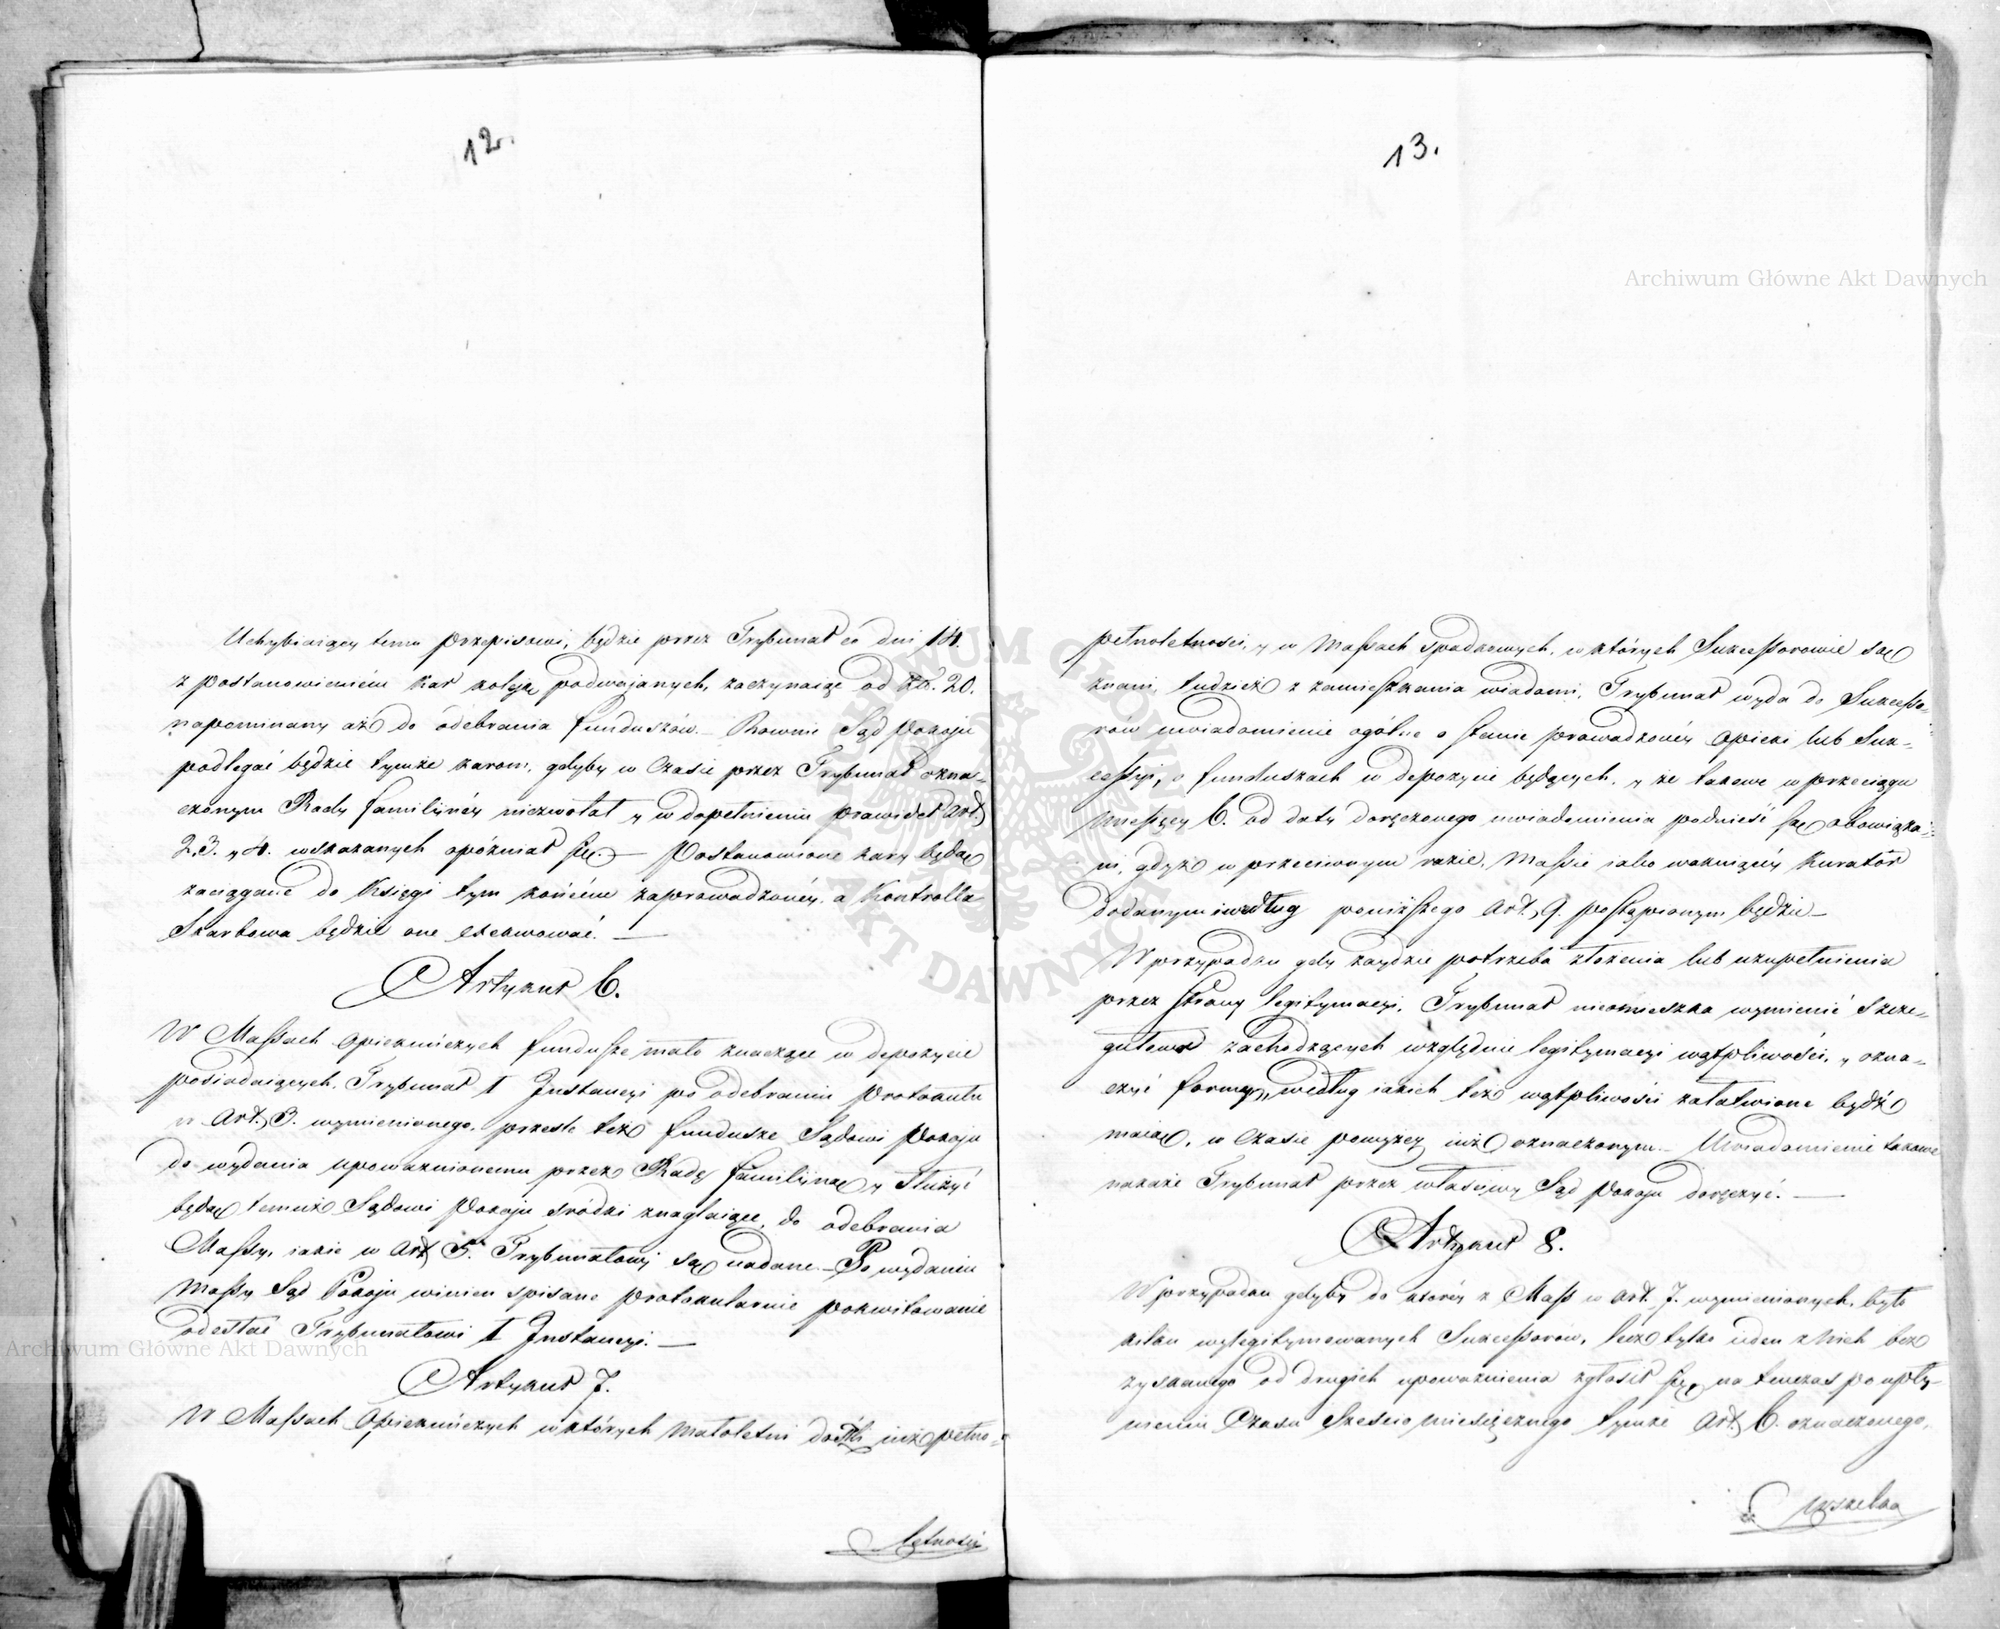 12.
Uchybiaiący temu przepisowi, będzie przez Trybunał co dni 14.
z postanowieniem kar koleją podwajanych, zaczynaiąc od Zł. 20.
napominany aż do odebrania funduszów. – Rownie Sąd Pokoju
podlegać będzie tymże karom, gdyby w czasie przez Trybunał ozna-
czonym Rady familijnéy niezwołał y w dopełnieniu prawideł Art.
2. 3. y 4. wskazanych opóźniał się. – Postanowione kary będą
zaciągane do Księgi tym końcem zaprowadzonéy, a Kontrolla
Skarbowa będzie one exekwować. —
Artykuł 6.
W Massach Opiekuńczych fundusze mało znaczące w depozycie
posiadaiących, Trybunał I Instancyi po odebraniu Protokułu
w Art. 3. wymienionego, prześle też fundusze Sądowi Pokoju
do wydania upoważnionemu przez Radę familijną y służyć
będą temuż Sądowi Pokoju środki znaglaiące, do odebrania
Massy, iakie w Art. 5. Trybunałowi są nadane. – Po wydaniu
Massy Sąd Pokoju winien spisane protokularnie pokwitowanie
odesłać Trybunałowi I Instancyi. —
Artykuł 7.
W Massach Opiekuńczych w których małoletni doszli iuż pełno-
letności
13.
pełnoletności, y w Massach spadkowych, w których Sukcessorowie są
znani, tudzież z zamieszkania wiadomi, Trybunał wyda do Sukcesso-
rów uwiadomienie ogólne o stanie prowadzonéy Opieki lub Suk-
cessyi, o funduszach w depozycie będących, y że takowe w przeciągu
Miesięcy 6. od daty doręczonego uwiadomienia podnieść są obowiąza-
ni, gdyż w przeciwnym razie, Massie iako wakuiącéy Kurator
dodanym i według poniższego Art. 9. postąpionym będzie –
W przypadku gdy zaydzie potrzeba złożenia lub uzupełnienia
przez strony legitymacyi, Trybunał nieomieszka wymienić szcze-
gułowo zachodzących względnie legitymacyi wątpliwości, y ozna-
czyć formy, według iakich też wątpliwości załatwione bydź
maią, w czasie powyżey iuż oznaczonym. – Uwiadomienie takowe
nakaże Trybunał przez właściwy Sąd Pokoju doręczyć. —
Artykuł 8.
W przypadku gdyby do któréy z Mass w Art. 7. wymienionych, było
kilku wylegitymowanych Sukcessorow, lecz tylko ieden z nich bez
zyskanego od drugich upoważnienia zgłosił się, na tenczas po upły-
nieniu Czasu Sześcio miesięcznego tymże Art. 6. oznaczonego,
wszelka
Archiwum Główne Akt Dawnych
Archiwum Główne Akt Dawnych
ARCHIWUM GŁÓWNE AKT DAWNYCH